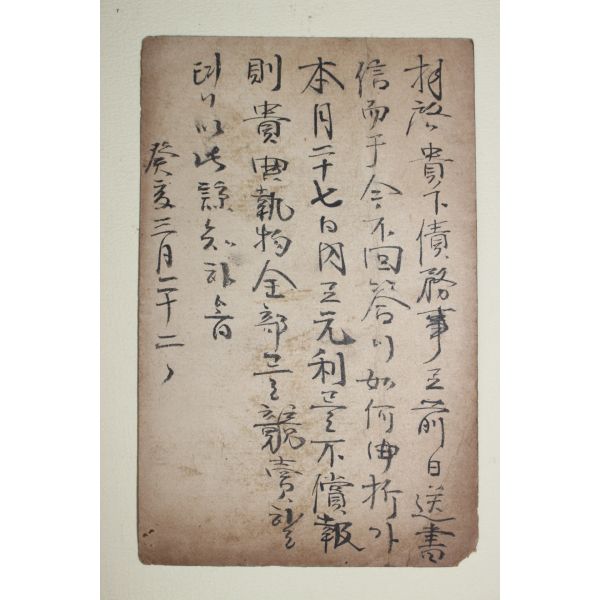 拜啓貴下債務事로前日送書
信而于今不回答이如何曲折가
本月二十七日內로元利를不償報
則貴典執物全部를競賣할
터이以此諒知하음
癸亥三月二十二